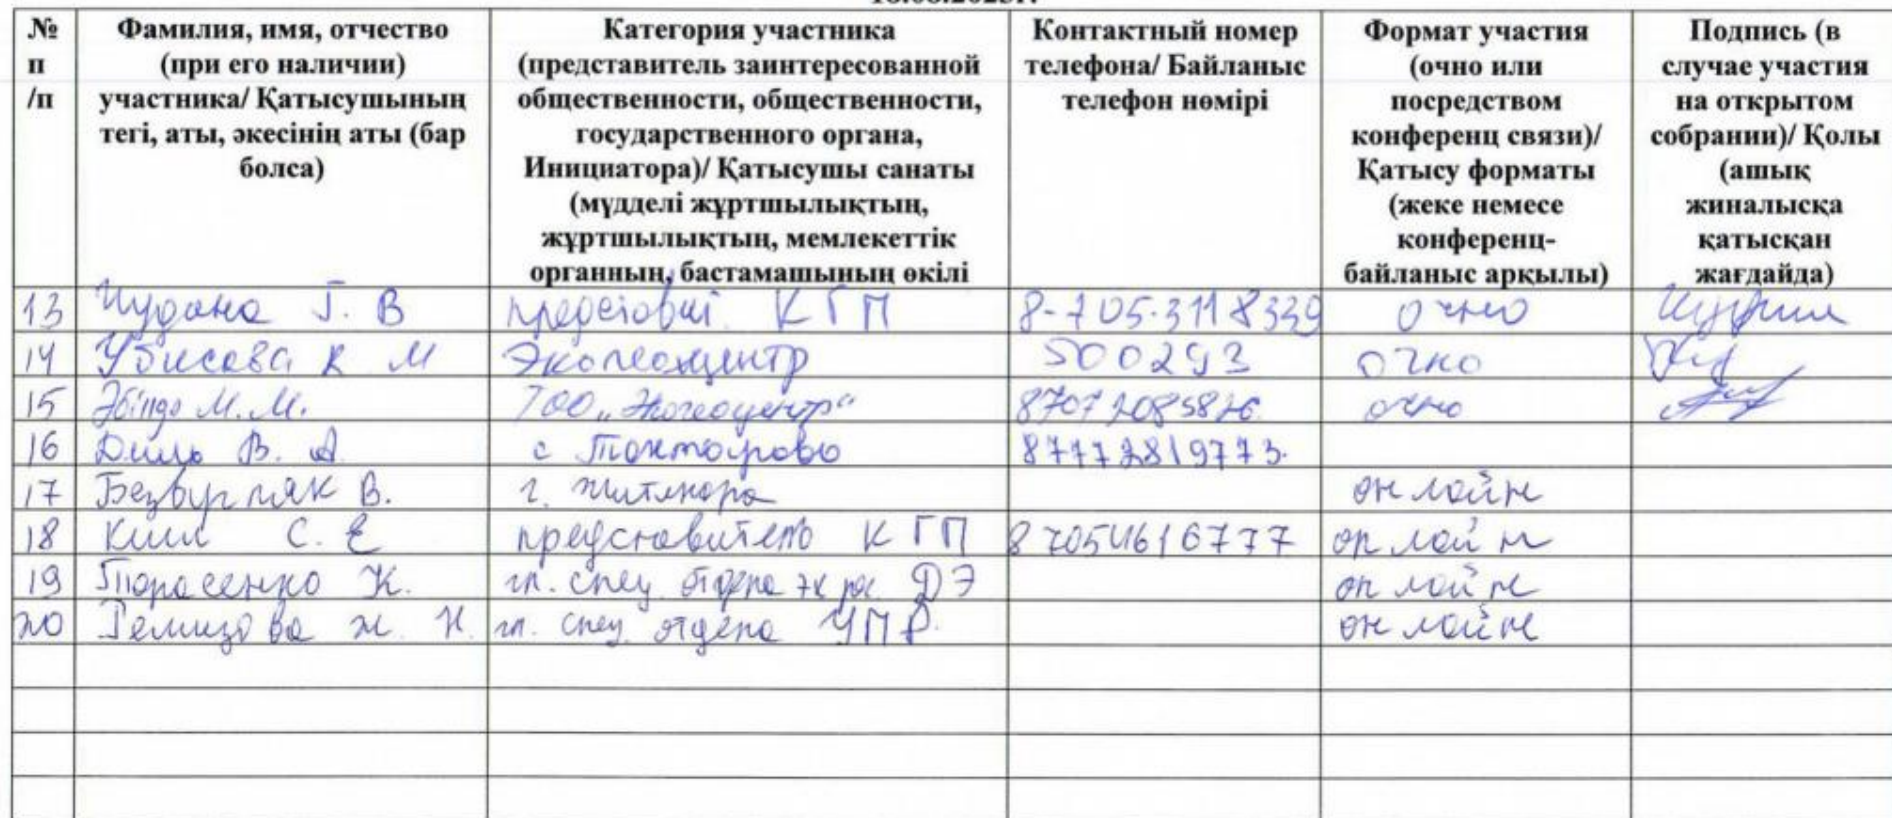 № п /п
Фамилия, имя, отчество
(при его наличии)
участника/ Қатысушының
тегі, аты, әкесінің аты (бар
болса)
Категория участника
(представитель заинтересованной
общественности, общественности,
государственного органа,
Инициатора)/ Қатысушы санаты
(мүдделі жұртшылықтың,
жұртшылықтың, мемлекеттік
органның, бастамашының өкілі
Контактный номер
телефона/ Байланыс
телефон нөмірі
Формат участия
(очно или
посредством
конференц связи)/
Қатысу форматы
(жеке немесе
конференц-
байланыс арқылы)
Подпись (в
случае участия
на открытом
собрании)/ Қолы
(ашық
жиналысқа
қатысқан
жағдайда)
13 Г. В КГП 8-705-3118339 очно
14 К М Экогеоцентр 500293 очно
15 М.М. ТОО „Экогеоцентр“ очно
16 Диль В. А. с 87772819773.
17 В. г. онлайн
18 Ким С. Е представитель КГП 87054616777 онлайн
19 Тарасенко К. гл. спец. отдела ДЭ онлайн
20 Ремизова Ж. Н. гл. спец. отдела УПР. онлайн